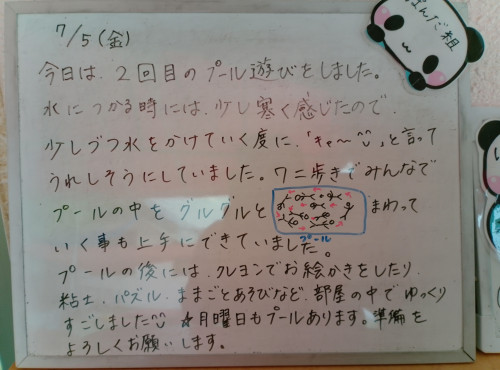 7/5(金)
ぱんだ組
今日は、2回目のプール遊びをしました。
水につかる時には、少し寒く感じたので、
少しづつ水をかけていく度に、「キャ〜^^」と言って
うれしそうにしていました。ワニ歩きでみんなで
プールの中をグルグルと まわって
プール
いく事も上手にできていました。
プールの後には、クレヨンでお絵かきをしたり、
粘土、パズル、ままごとあそびなど、部屋の中でゆっくり
すごしました^^ ☆月曜日もプールあります。準備を
よろしくお願いします。